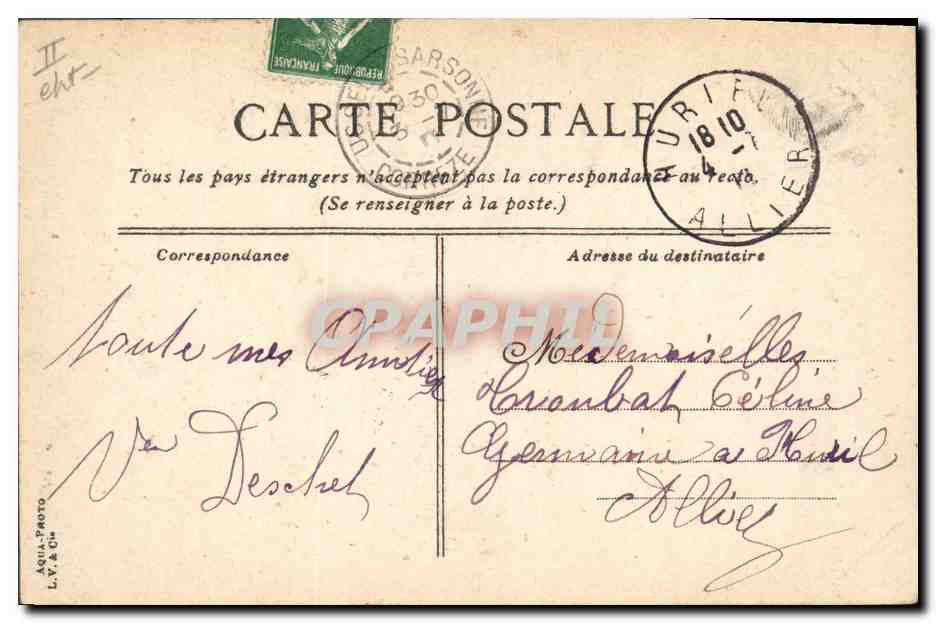 II
REPUBLIQUE FRANÇAISE
USSEL SARSONNE
9 30
CORREZE
HURIEL
18 10
4 -
ALLIER
CARTE POSTALE
Tous les pays étrangers n'acceptent pas la correspondance au recto.
(Se renseigner à la poste.)
Correspondance
Adresse du destinataire
CPAPHIL
toute mes Amitiés
Vve Deschet
Medemoisélles
Troubat Céline
Germaine a Huriel
Allier
AQUA-PHOTO
L. V. & Cie